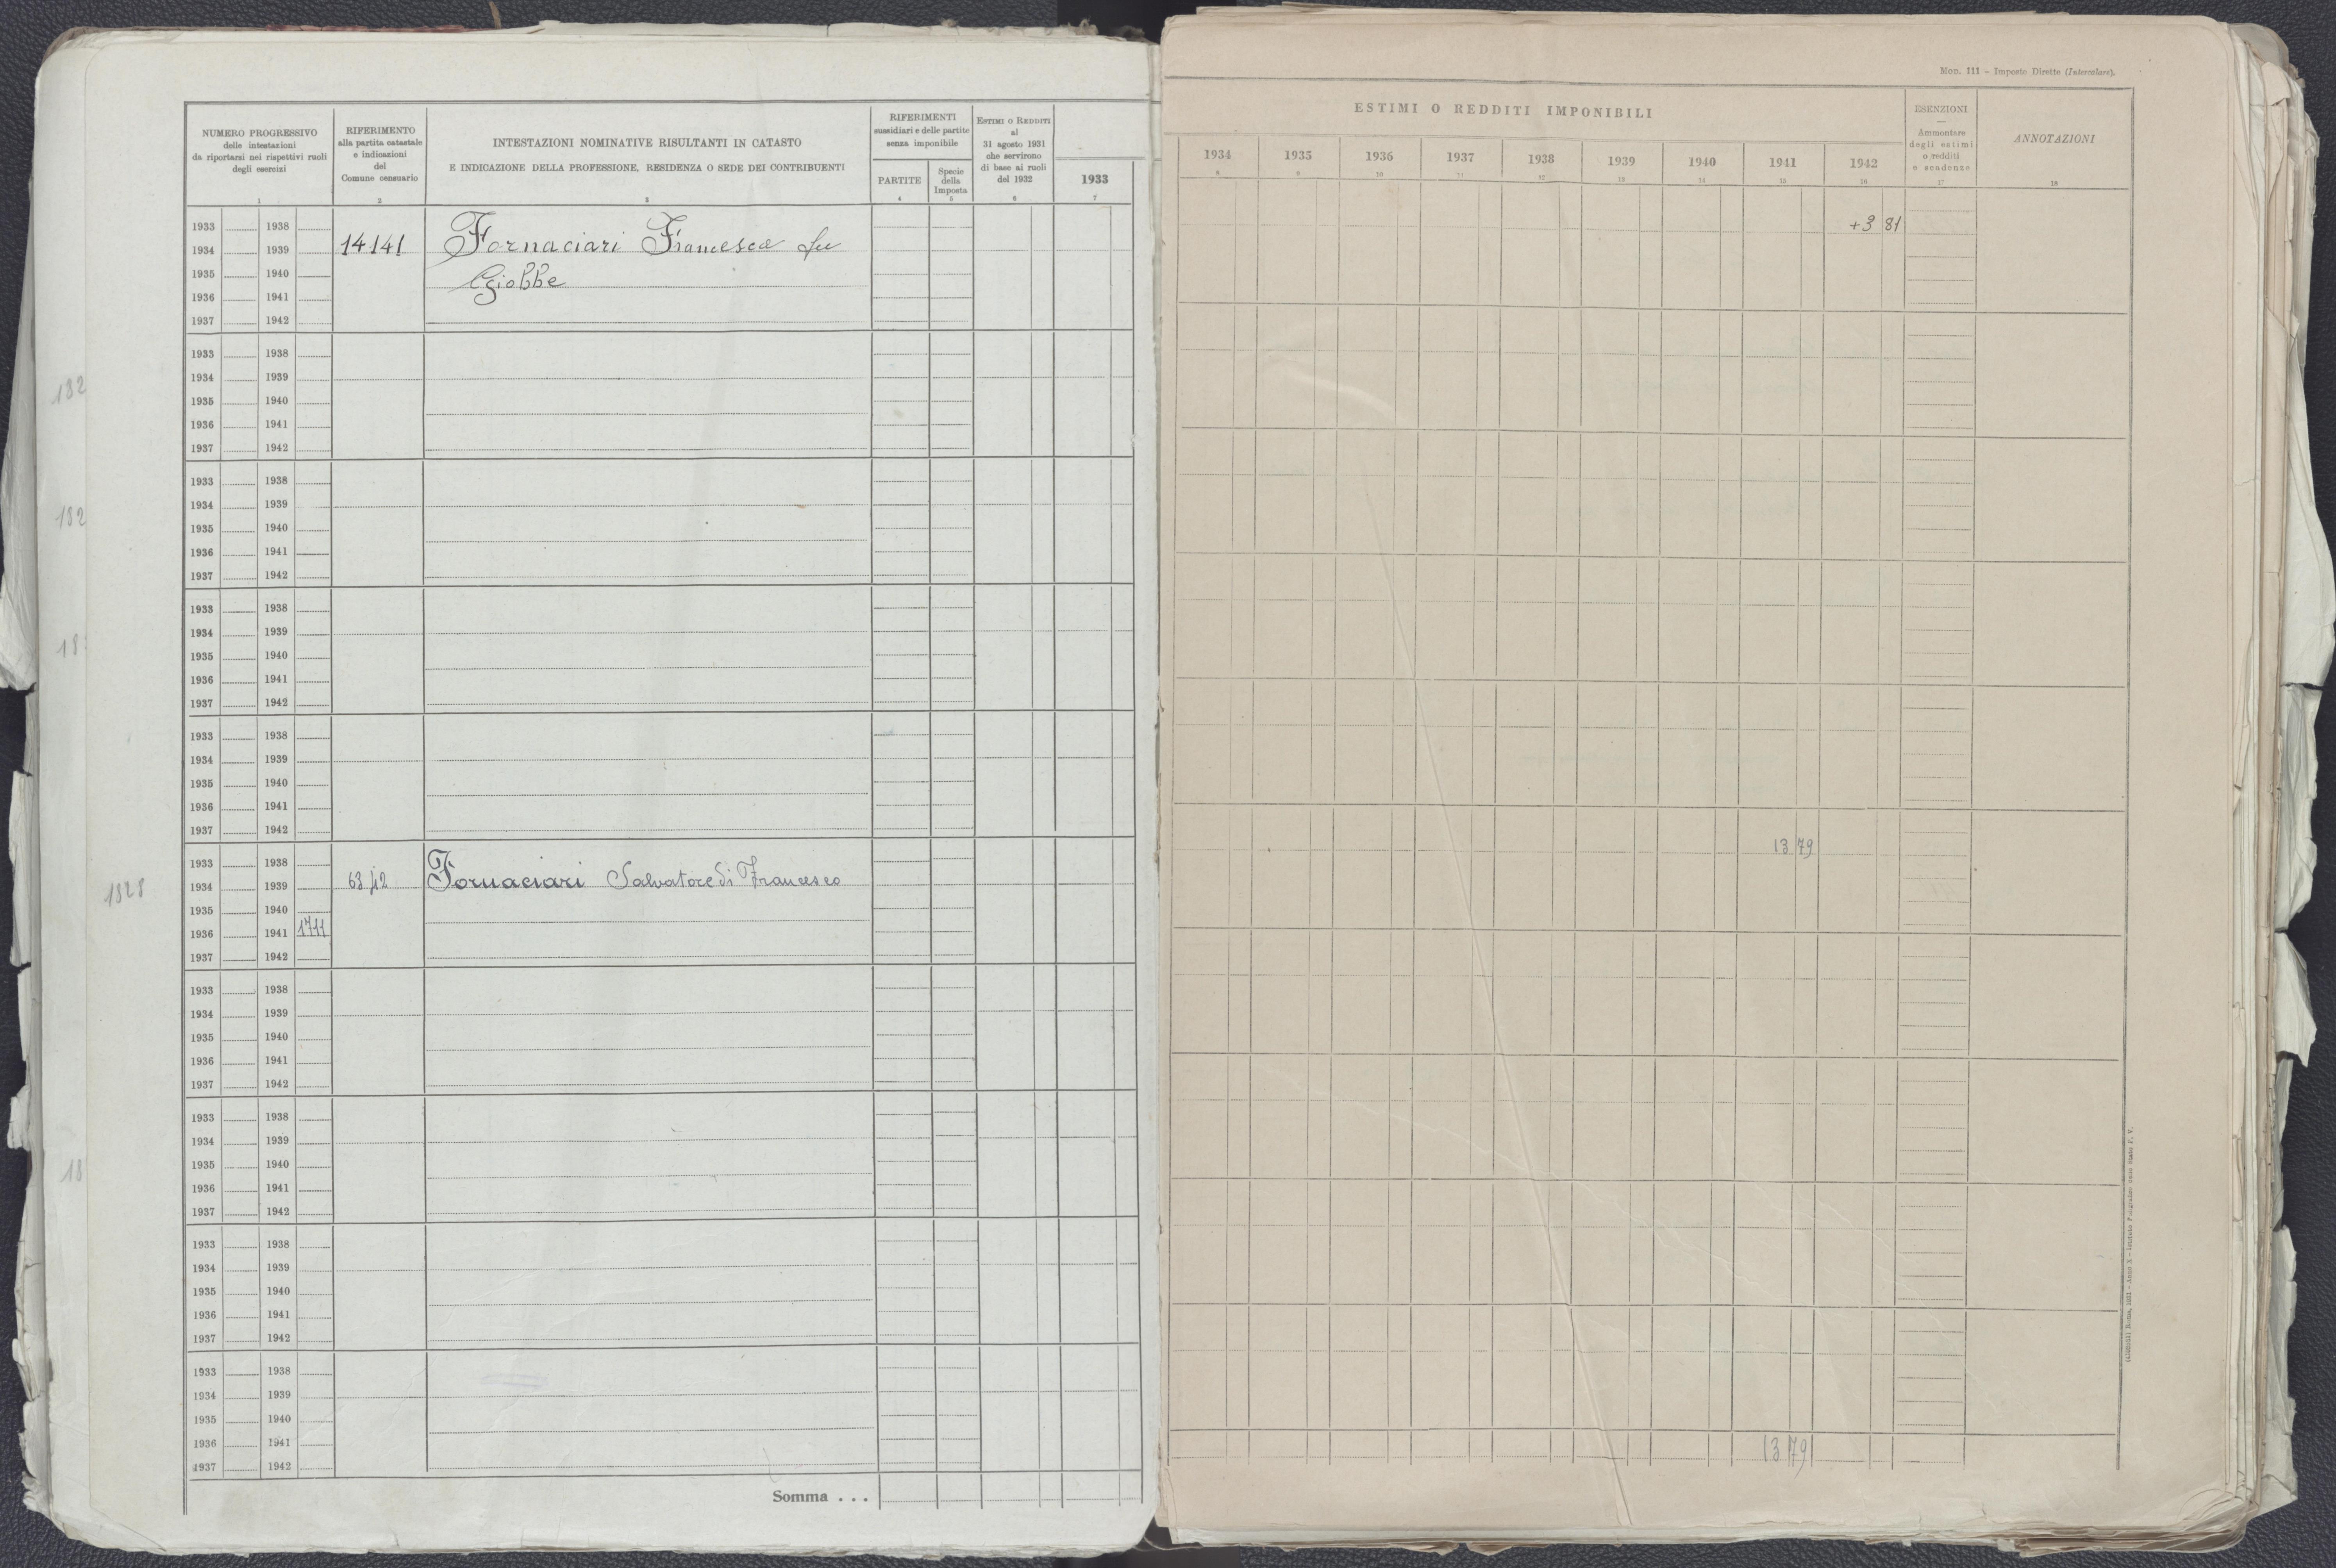 Mon. 111 – Imposte Dirette (Intercalare).
NUMERO PROGRESSIVO
delle intestazioni
da riportarsi nei rispettivi ruoli
degli esercizi
RIFERIMENTO
alla partita catastale
e indicazioni
del
Comune censuario
INTESTAZIONI NOMINATIVE RISULTANTI IN CATASTO
E INDICAZIONE DELLA PROFESSIONE, RESIDENZA O SEDE DEI CONTRIBUENTI
RIFERIMENTI
sussidiari e delle partite
senza imponibile
PARTITE
Specie
della
Imposta
ESTIMI O REDDITI
al
31 agosto 1931
che servirono
di base ai ruoli
del 1932
1933
ESTIMI O REDDITI IMPONIBILI
1934 1935 1936 1937 1938 1939 1940 1941 1942
ESENZIONI
—
Ammontare
degli estimi
o redditi
e scadenze
ANNOTAZIONI
1 2 3 4 5 6 7 8 9 10 11 12 13 14 15 16 17 18
1933 1938 +3 81
1934 1939 14141 Fornaciari Francesco fu
1935 1940 Giobbe
1936 1941
1937 1942
1933 1938
132
1934 1939
1935 1940
1936 1941
1937 1942
1933 1938
1934 1939
132
1935 1940
1936 1941
1937 1942
1933 1938
1934 1939
18
1935 1940
1936 1941
1937 1942
1933 1938
1934 1939
1935 1940
1936 1941
1937 1942
1933 1938 13 79
1328 1934 1939 6312 Fornaciari Salvatore di Francesco
1935 1940
1936 1941 1711
1937 1942
1933 1938
1934 1939
1935 1940
1936 1941
1937 1942
1933 1938
1934 1939
1935 1940
18
1936 1941
1937 1942
1933 1938
1934 1939
1935 1940
1936 1941
1937 1942
1933 1938
1934 1939
1935 1940
1936 1941 13 79
1937 1942
Somma . . .